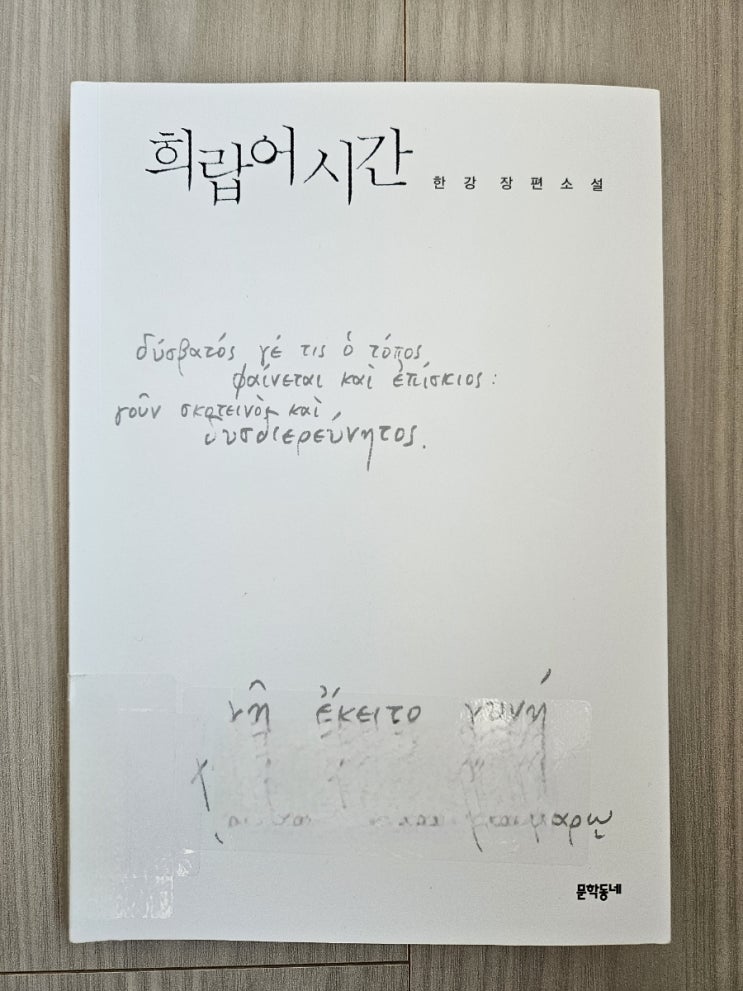 희랍어 시간
한강 장편소설
δύσβατός γέ τις ὁ τόπος
φαίνεται καὶ ἐπίσκιος·
γοῦν σκοτεινὸς καὶ
δυσδιερεύνητος.
γῆ ἔκειτο γυνή
문학동네